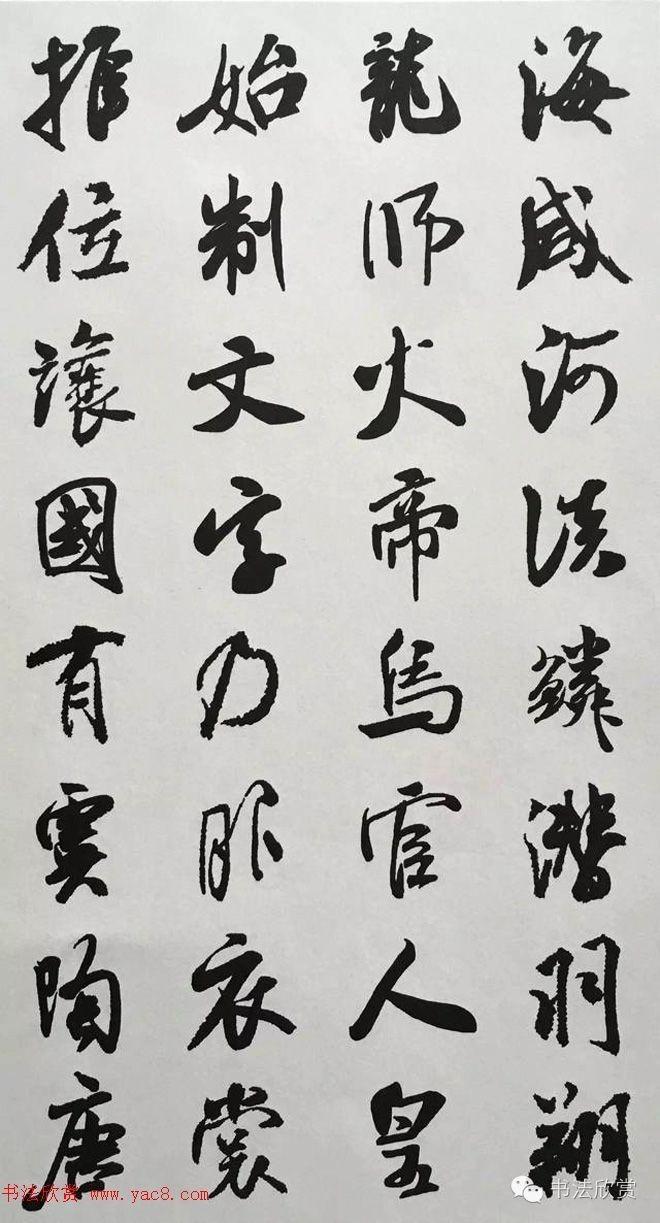 海咸河淡鳞潜羽翔
龍师火帝鸟官人皇
始制文字乃服衣裳
推位讓國有虞陶唐
书法欣赏 www.yac8.com
书法欣赏